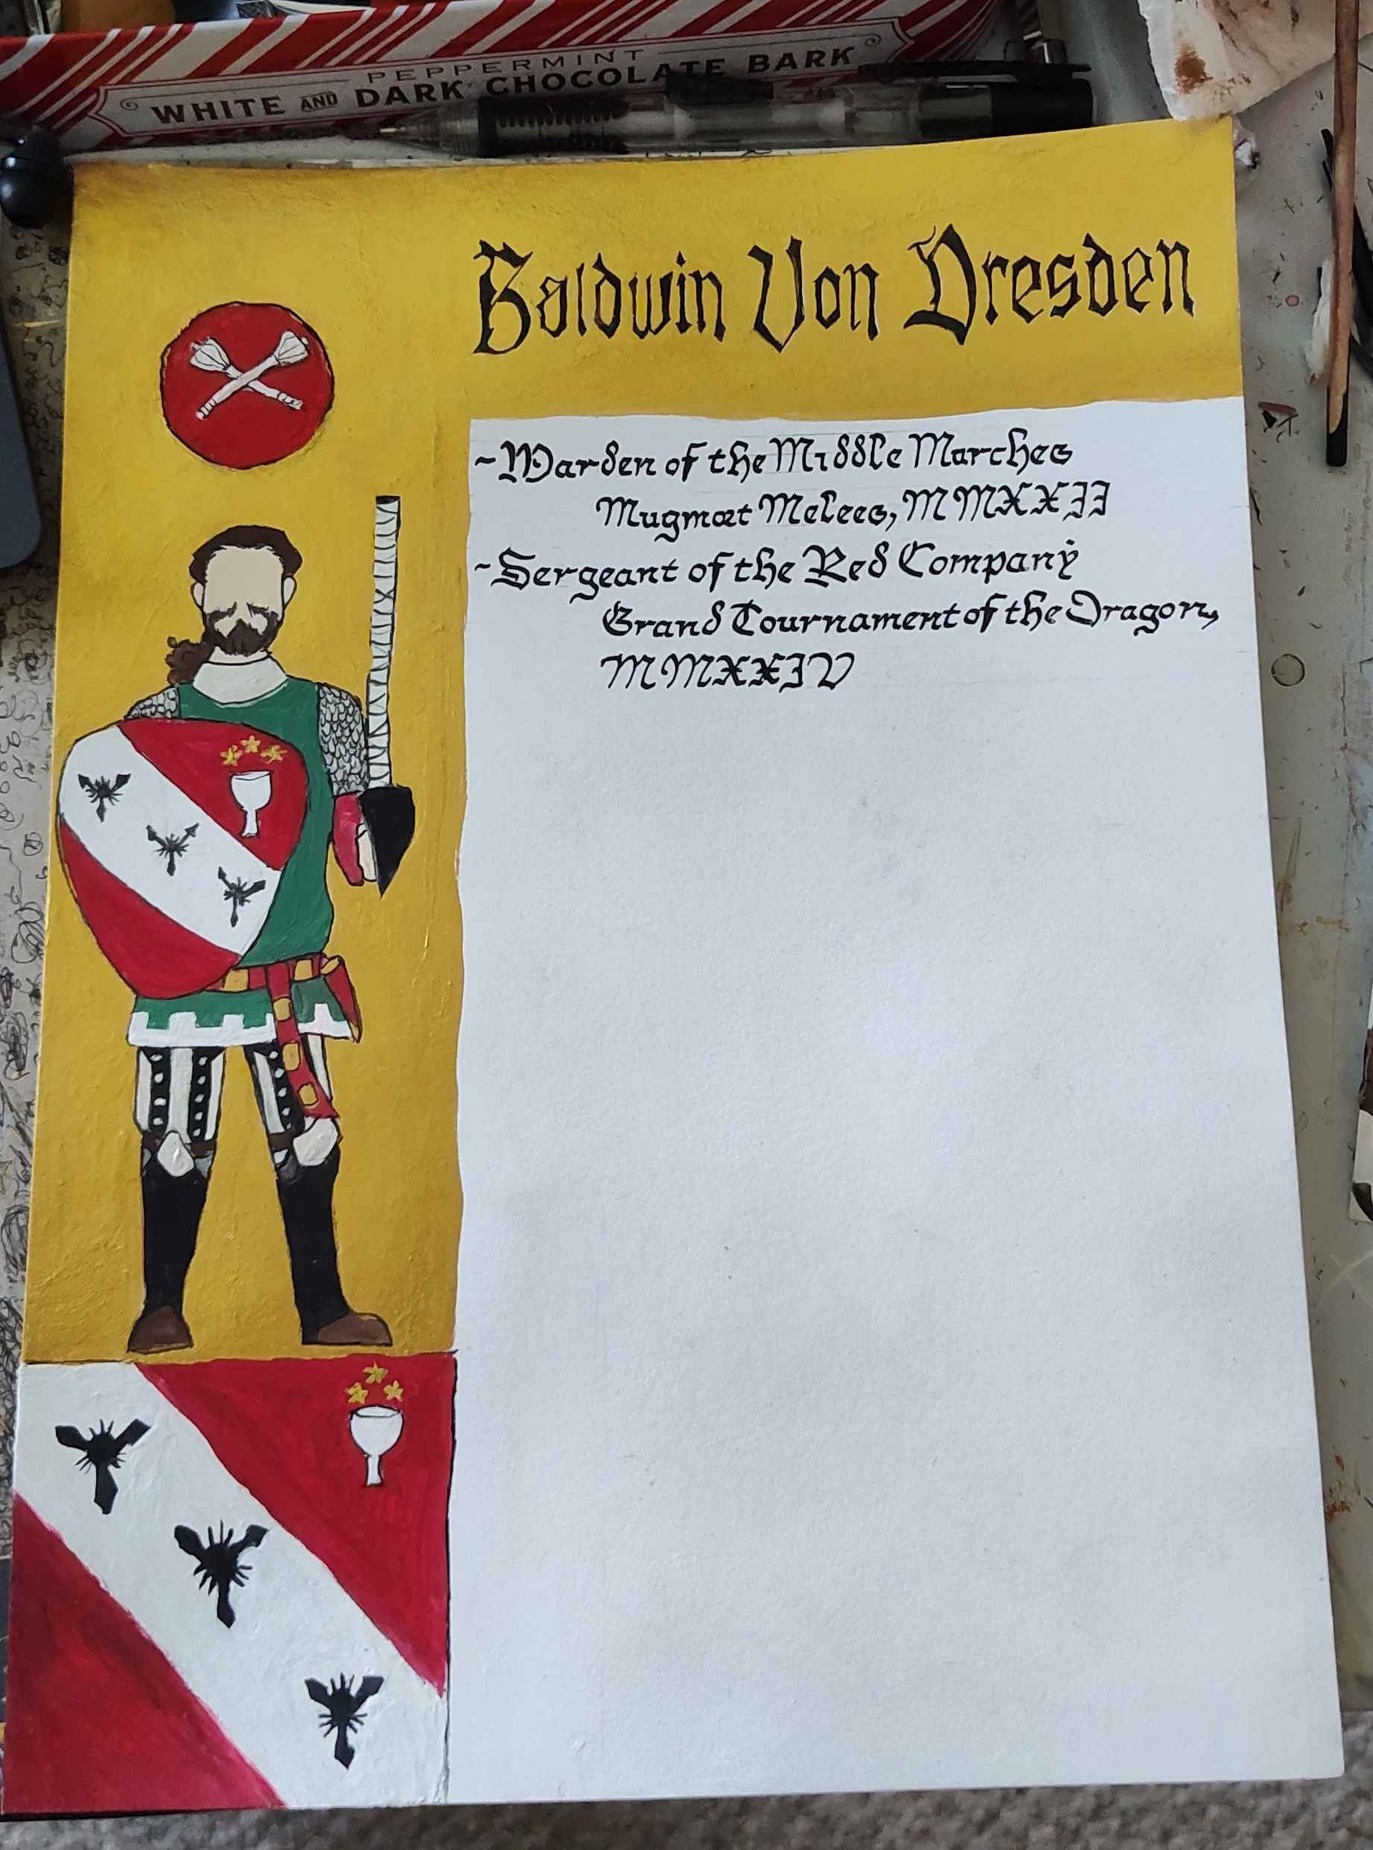 PEPPERMINT
WHITE AND DARK CHOCOLATE BARK
Baldwin Von Dresden
~Warden of the Middle Marches
Mugmæt Melees, MMXXII
~Sergeant of the Red Company
Grand Tournament of the Dragon,
MMXXIV